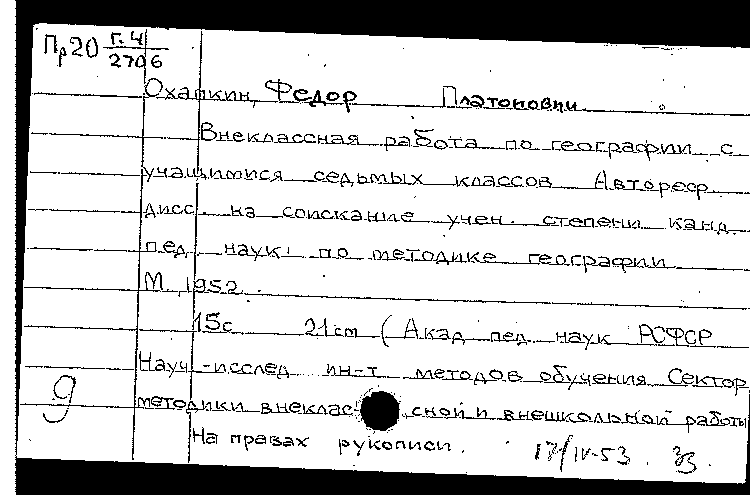 Пр20 Г.4
2706
Охапкин, Федор Платонович
Внеклассная работа по географии с
учащимися седьмых классов Автореф.
дисс. на соискание учен. степени канд.
пед. наук по методике географии
М. 1952.
15с 21cm (Акад пед. наук РСФСР
Науч-исслед ин-т методов обучения Сектор
методики внеклассной и внешкольной работы
9
На правах рукописи.
17/IV-53.